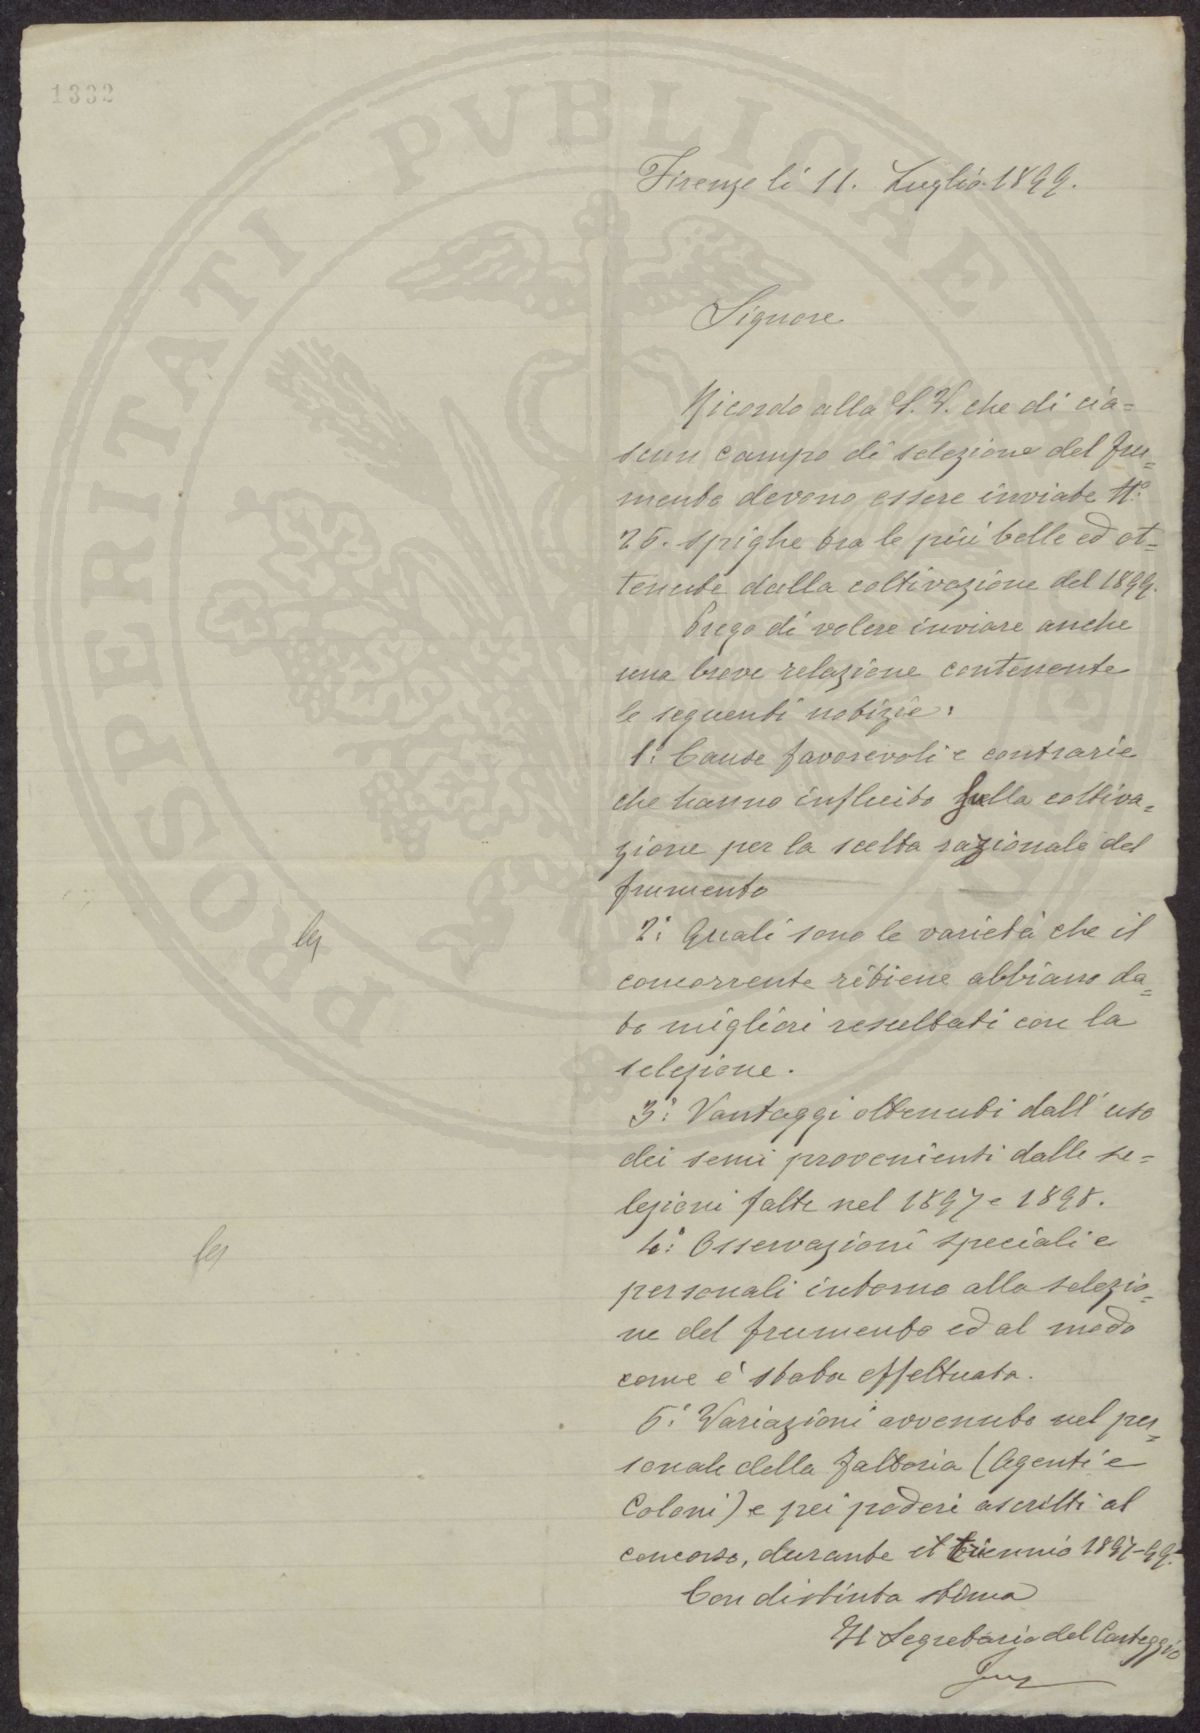 1332
PROSPERITATI PVBLICAE AVGENDAE
Firenze lí 11. Luglio 1899.
Signore
Ricordo alla S. V. che di cia=
scun campo di selezione del fru=
mento devono essere inviate N.°
25. spighe tra le più belle ed ot=
tenute dalla coltivazione del 1899.
Prego di volere inviare anche
una breve relazione contenente
le seguenti notizie:
1.° Cause favorevoli e contrarie
che hanno influito sulla coltiva=
zione per la scelta razionale del
frumento
2.° Quali sono le varietà che il
concorrente ritiene abbiano da=
to migliori resultati con la
selezione.
3.° Vantaggi ottenuti dall'uso
dei semi provenienti dalle se=
lezioni fatte nel 1897 e 1898.
4.° Osservazioni speciali e
personali intorno alla selezio=
ne del frumento ed al modo
come è stata effettuata.
5.° Variazioni avvenute nel per=
sonale della Fattoria (Agenti e
Coloni) e pei poderi ascritti al
concorso, durante il triennio 1897-99.
Con distinta stima
Il Segretario del Carteggio